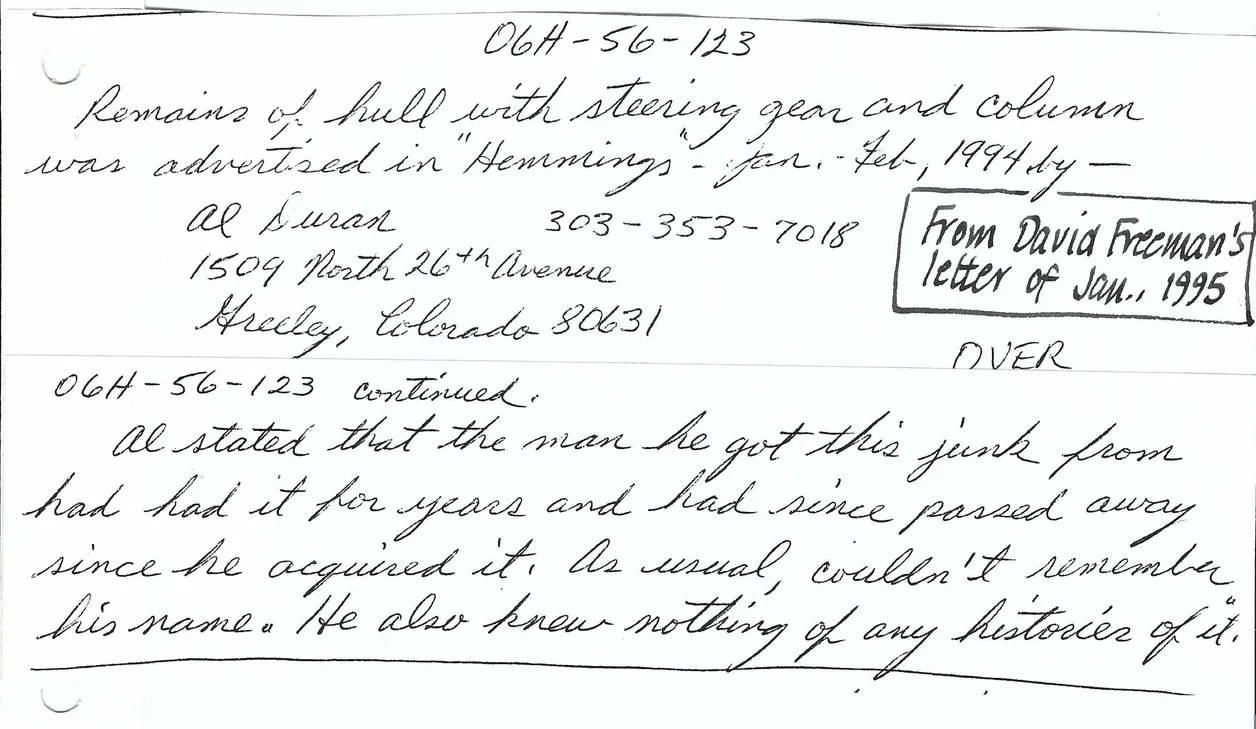 06H-56-123
Remains of hull with steering gear and column
was advertised in "Hemmings" - Jan. - Feb, 1994 by —
Al Duran 303-353-7018
1509 North 26th Avenue
Greeley, Colorado 80631
From David Freeman's
letter of Jan., 1995
OVER
06H-56-123 continued.
Al stated that the man he got this junk from
had had it for years and had since passed away
since he acquired it. As usual, couldn't remember
his name. He also knew nothing of any histories of "it".